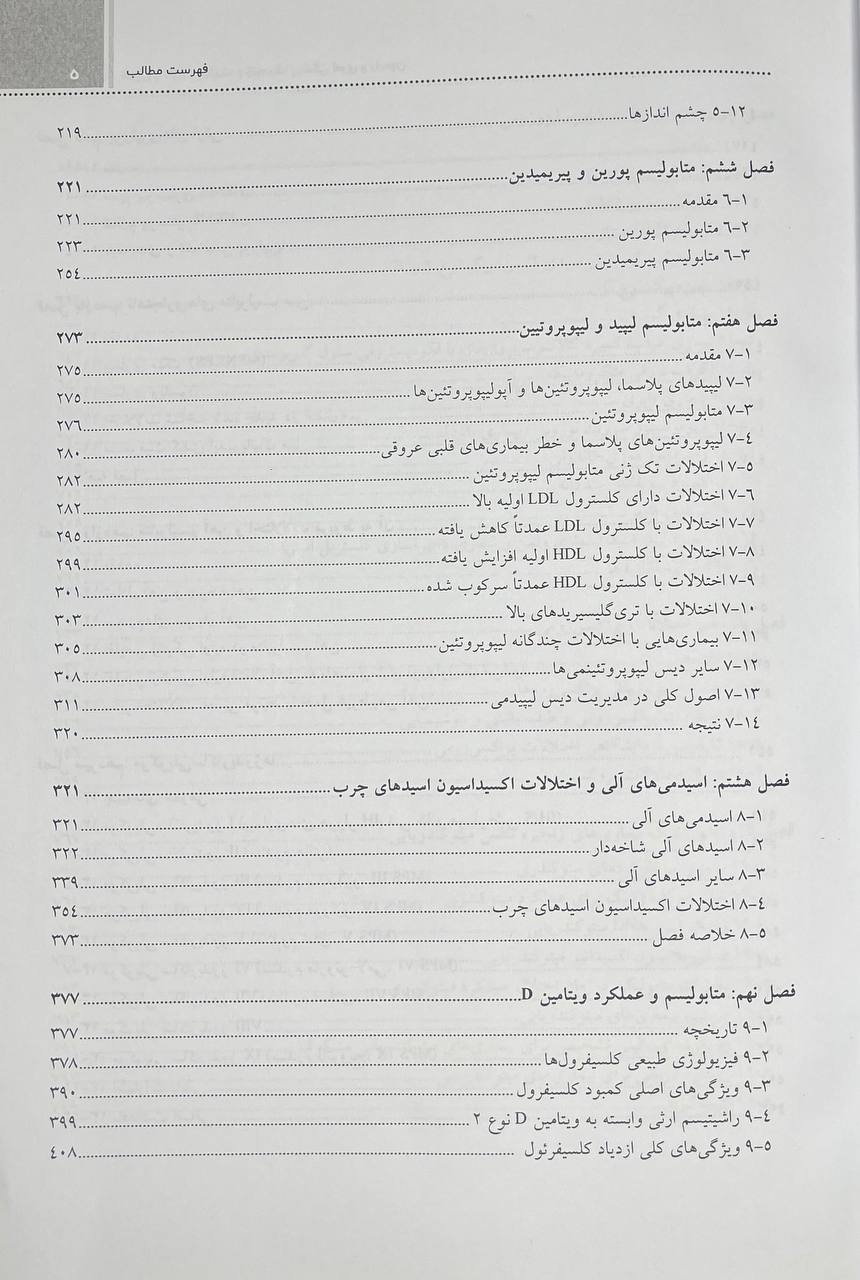 فهرست مطالب ۵
۵-۱۲ چشم اندازها ۲۱۹
فصل ششم: متابولیسم پورین و پیریمیدین ۲۲۱
۶-۱ مقدمه ۲۲۱
۶-۲ متابولیسم پورین ۲۲۳
۶-۳ متابولیسم پیریمیدین ۲۵۴
فصل هفتم: متابولیسم لیپید و لیپوپروتیین ۲۷۳
۷-۱ مقدمه ۲۷۵
۷-۲ لیپیدهای پلاسما، لیپوپروتئین‌ها و آپولیپوپروتئین‌ها ۲۷۵
۷-۳ متابولیسم لیپوپروتئین ۲۷۶
۷-۴ لیپوپروتئین‌های پلاسما و خطر بیماری‌های قلبی عروقی ۲۸۰
۷-۵ اختلالات تک ژنی متابولیسم لیپوپروتئین ۲۸۲
۷-۶ اختلالات دارای کلسترول LDL اولیه بالا ۲۸۲
۷-۷ اختلالات با کلسترول LDL عمدتاً کاهش یافته ۲۹۵
۷-۸ اختلالات با کلسترول HDL اولیه افزایش یافته ۲۹۹
۷-۹ اختلالات با کلسترول HDL عمدتاً سرکوب شده ۳۰۱
۷-۱۰ اختلالات با تری‌گلیسیریدهای بالا ۳۰۳
۷-۱۱ بیماری‌هایی با اختلالات چندگانه لیپوپروتئین ۳۰۵
۷-۱۲ سایر دیس لیپوپروتئینمی‌ها ۳۰۸
۷-۱۳ اصول کلی در مدیریت دیس لیپیدمی ۳۱۱
۷-۱۴ نتیجه ۳۲۰
فصل هشتم: اسیدمی‌های آلی و اختلالات اکسیداسیون اسیدهای چرب ۳۲۱
۸-۱ اسیدمی‌های آلی ۳۲۱
۸-۲ اسیدهای آلی شاخه‌دار ۳۲۲
۸-۳ سایر اسیدهای آلی ۳۳۹
۸-۴ اختلالات اکسیداسیون اسیدهای چرب ۳۵۴
۸-۵ خلاصه فصل ۳۷۳
فصل نهم: متابولیسم و عملکرد ویتامین D ۳۷۷
۹-۱ تاریخچه ۳۷۷
۹-۲ فیزیولوژی طبیعی کلسیفرول‌ها ۳۷۸
۹-۳ ویژگی‌های اصلی کمبود کلسیفرول ۳۹۰
۹-۴ راشیتیسم ارثی وابسته به ویتامین D نوع ۲ ۳۹۹
۹-۵ ویژگی‌های کلی ازدیاد کلسیفرئول ۴۰۸